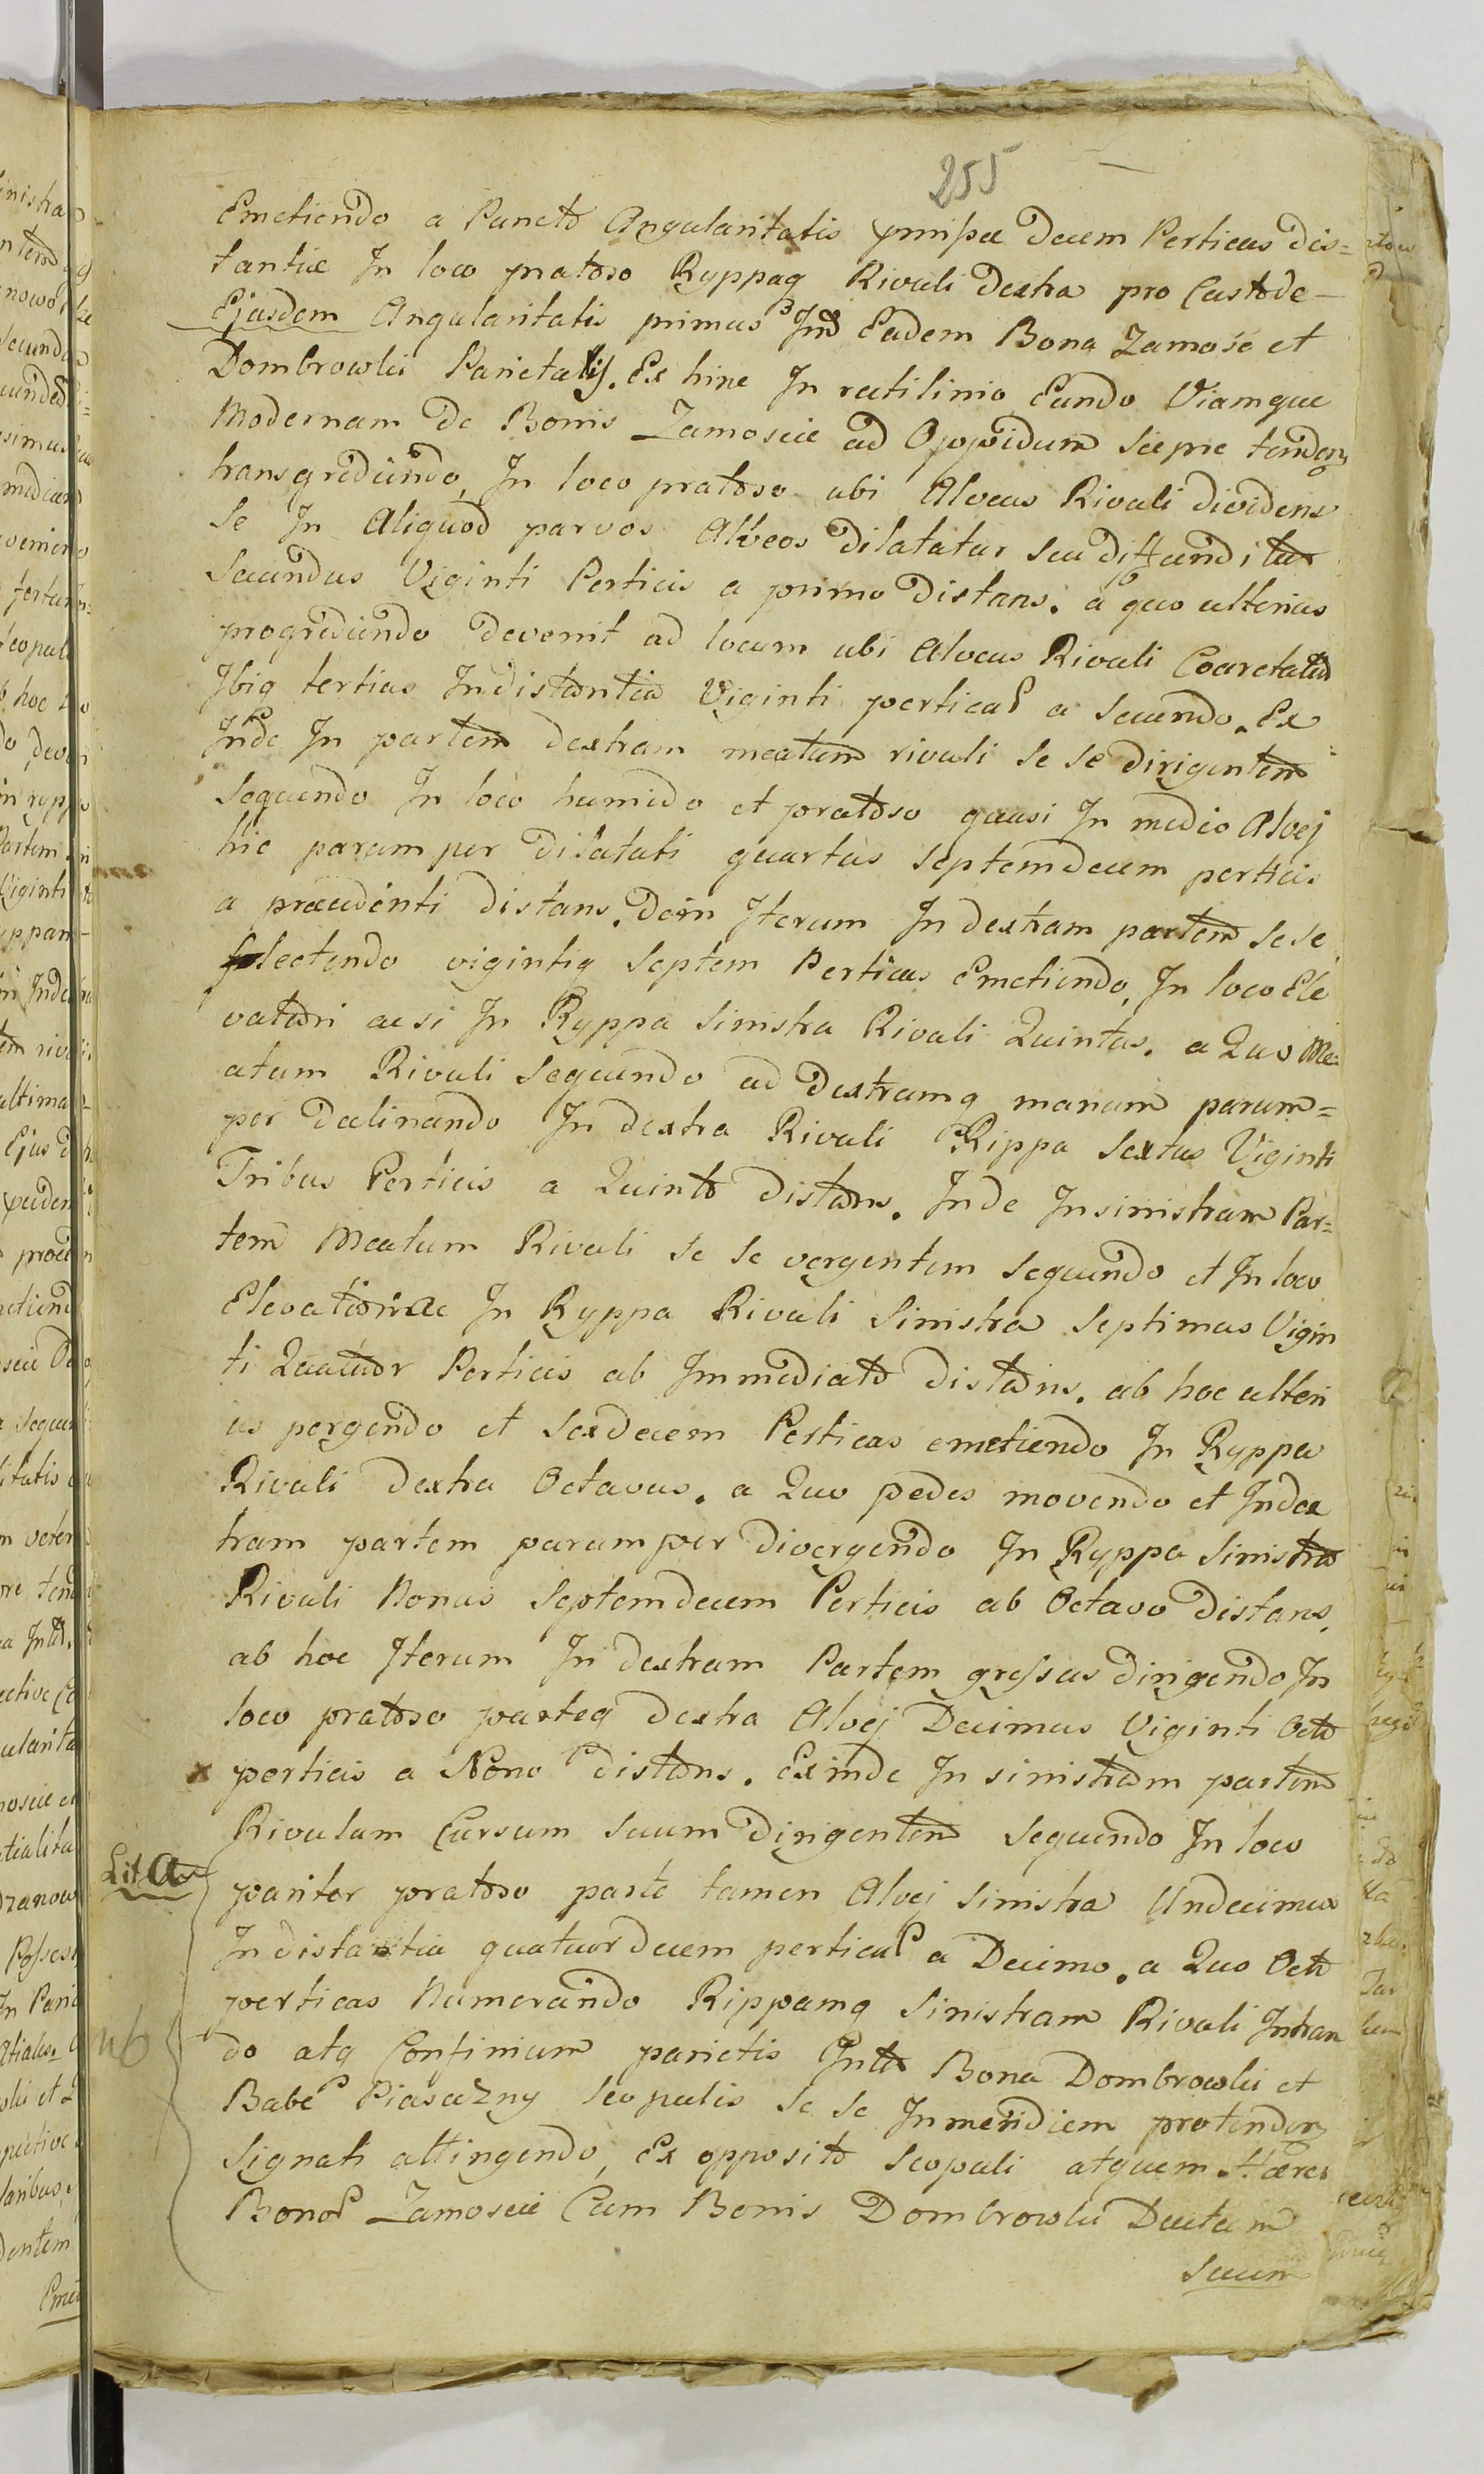 255
Emetiendo a Puncto Angularitatis decem Perticas dis=
tantiæ In loco pratoso Ryppaq Rivuli dextra pro Custode—
Ejusdem Angularitatis primus Eadem Bona Zamosc et
Dombrowka Parietalis. Ex hinc In rectilinio Eundo Viamque
Modernam de Bonis Zamoscie ad Oppidum tenden
transgrediendo, In loco pratoso ubi Alveus Rivuli dividens
se In Aliquod parvos Alveos dilatatur seu diffunditur
Secundus Viginti Perticis a primo distans. a quo ulterius
progrediendo devenit ad locum ubi Alveus Rivuli Coarctatur
Ibiq tertius In distantia Viginti a secundo. Ex
Inde In partem dextram meatum rivuli se se dirigentem
sequendo In loco humido et pratoso quasi In medio Alvej
hic parumper dilatati quartus septemdecem perticis
a præcedenti distans. dein Iterum In dextram partem sese
flectendo vigintiq septem Perticas Emetiendo, In loco Ele
vatiori acsi In Ryppa sinistra Rivuli Quintus. a Quo Me=
atum Rivuli sequendo ad dextramq manum parum=
per declinando In dextra Rivuli Rippa sextus Viginti
Tribus Perticis a Quinto distans. Inde In sinistram Par=
tem Meatum Rivuli se se vergentem sequendo et In loco
In Ryppa Rivuli Sinistra Septimus Vigin
ti Quatuor Perticis ab Immediato distans. ab hoc ulteri
us pergendo et sexdecem Perticas emetiendo In Ryppa
Rivuli dextra Octavus. a Quo pedes movendo et In dex
tram partem parumper divergendo In Ryppa Sinistra
Rivuli Nonus Septemdecem Perticis ab Octavo distans,
ab hoc Iterum In dextram Partem gressus dirigendo In
loco pratoso parteq dextra Alvej Decimus Viginti Octo
x perticis a Nono distans. Exinde In sinistram partem
Rivulum Cursum suum dirigentem sequendo In loco
Lit a
pariter pratoso parte tamen Alvej sinistra Undecimus
In distantia quatuordecem a Decimo. a Quo Octo
perticas Numerando Rippamq sinistram Rivuli Intran
nb
do atq Confinium parietis Bona Dombrowka et
Piaseczny scopulis se se In meridiem protenden
signati attingendo, Ex opposito scopuli
Zamoscie Cum Bonis Dombrowka Ductum
suum